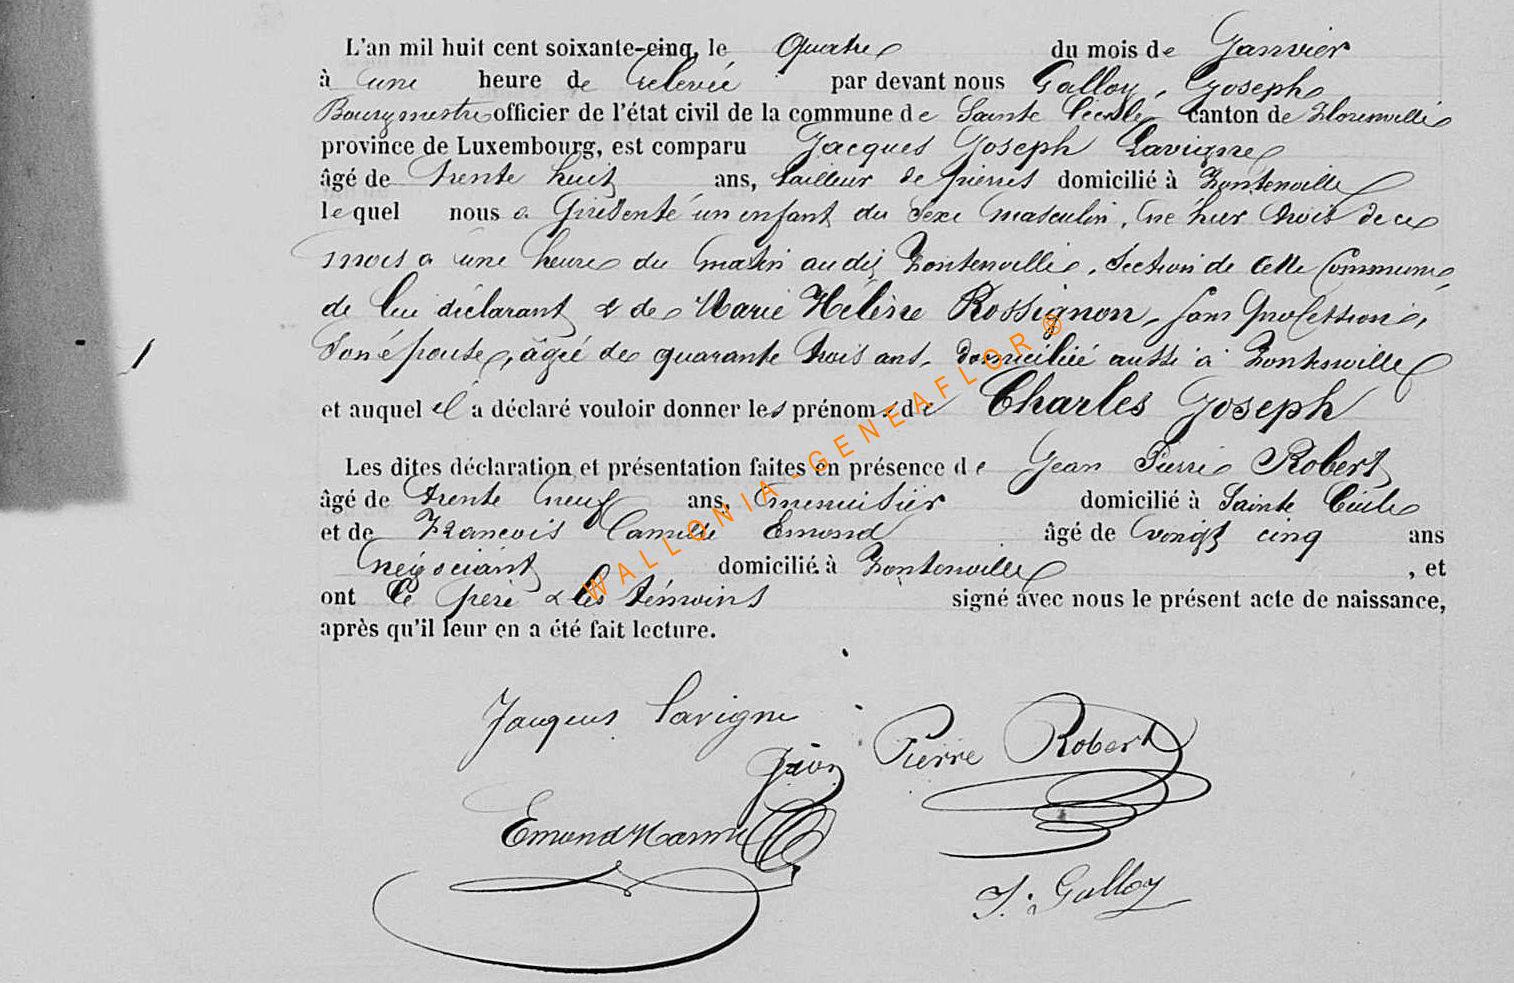 L'an mil huit cent soixante-cinq, le Quatre du mois de Janvier
à une heure de relevée par devant nous Galloy, Joseph
Bourgmestre officier de l'état civil de la commune de Sainte Cécile canton de Florenville
province de Luxembourg, est comparu Jacques Joseph Lavigne
âgé de trente huit ans, tailleur de pierres domicilié à Fontenoille
lequel nous a présenté un enfant du sexe masculin, né hier trois de ce
mois a une heure du matin audit Fontenoille, section de cette Commune,
de lui déclarant & de Marie Hélène Rossignon, sans profession,
son épouse, âgée de quarante trois ans, domiciliée aussi à Fontenoille
et auquel il a déclaré vouloir donner les prénoms de Charles Joseph
Les dites déclaration et présentation faites en présence de Jean Pierre Robert
âgé de trente neuf ans, menuisier domicilié à Sainte Cécile
et de François Camille Emond âgé de vingt cinq ans
négociant domicilié à Fontenoille, et
ont le père & les témoins signé avec nous le présent acte de naissance,
après qu'il leur en a été fait lecture.
Jacques Lavigne
Jean Pierre Robert
Emond
J. Galloy
WALLONIA-GENEAFLOR®